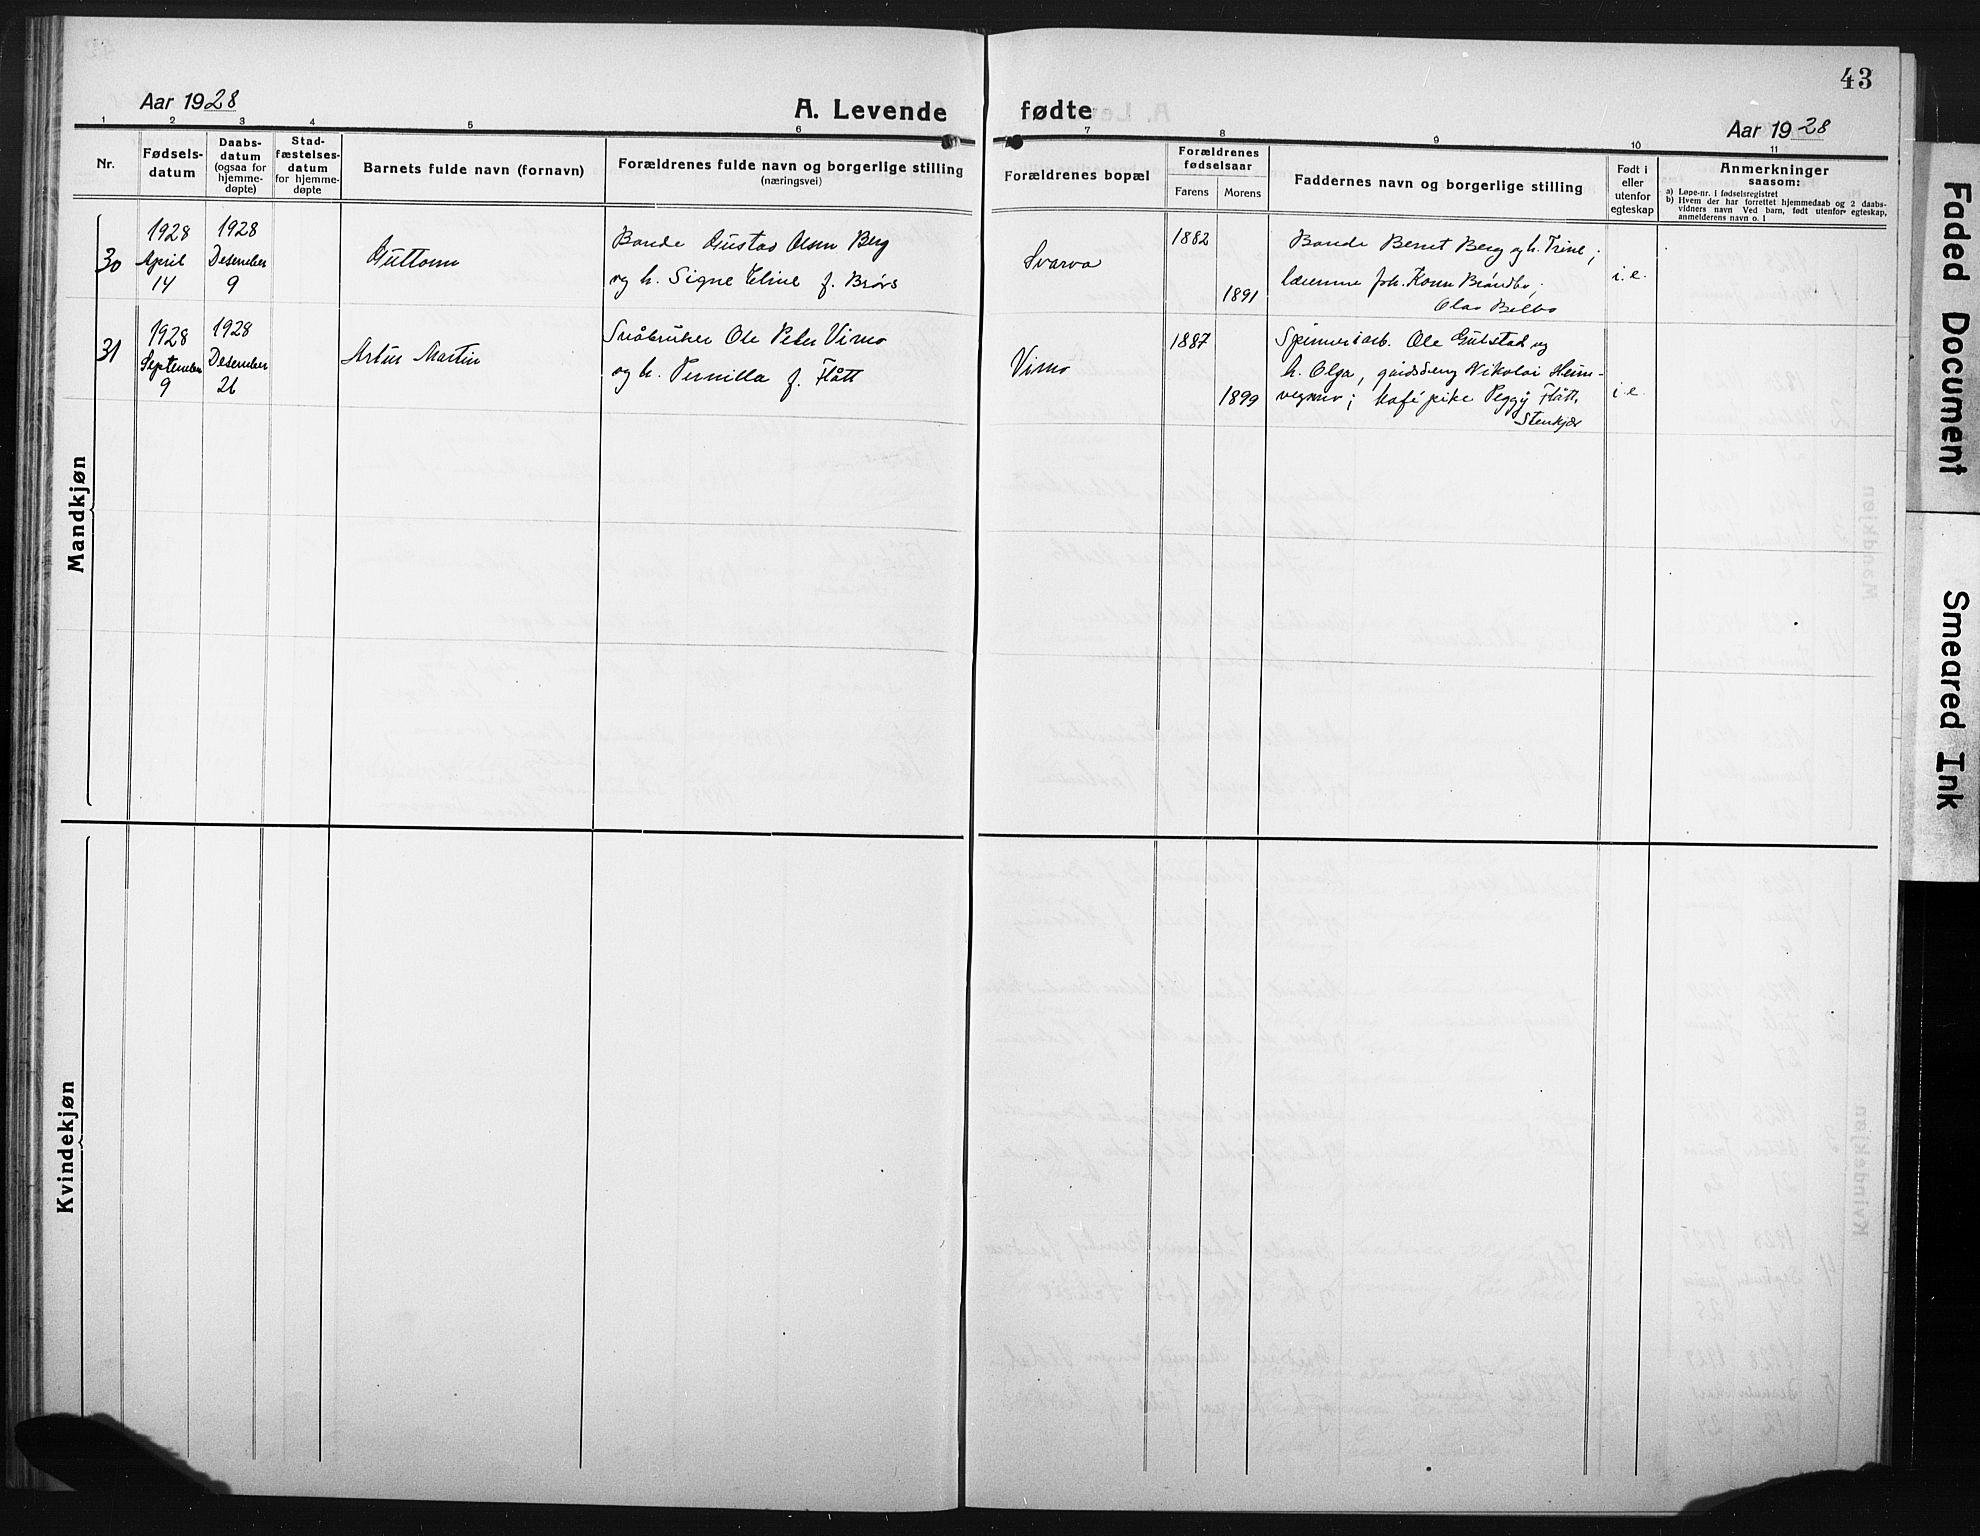 43
Aar 1928
A. Levende fødte
Aar 1928
1 2 3 4 5 6 7 8 9 10 11
Nr.
Fødsels-
datum
Daabs-
datum
(ogsaa for
hjemme-
døpte)
Stad-
fæstelses-
datum
for hjemme-
døpte
Barnets fulde navn (fornavn)
Forældrenes fulde navn og borgerlige stilling
(næringsvei)
Forældrenes bopæl
Forældrenes
fødselsaar
Farens Morens
Faddernes navn og borgerlige stilling
Født i
eller
utenfor
egteskap
Anmerkninger
saasom:
a) Løpe-nr. i fødselsregistret
b) Hvem der har forrettet hjemmedaab og 2 daabs-
vidners navn Ved barn, født utenfor egteskap,
anmelderens navn o. l
Mandkjøn
30
1928
April
14
1928
Desember
9
Guttorm
Bonde Gustav Olsen Berg
og h. Signe Eline f. Brørs
Svarva
1882
1891
Bonde Bernt Berg og h. Trine;
Joh. Konr. Brøndbo,
Olav
i. e.
31
1928
September
9
1928
Desember
26
Artur Martin
Småbruker Ole Peter Vismo
og h. Pernilla f. Flått
Vismo
1887
1899
Ole Gulstad og
h. Olga, Nikolai Heim-
; kafépike Peggy Flått,
Stenkjær
i. e.
Kvindekjøn
Faded Document
Smeared Ink